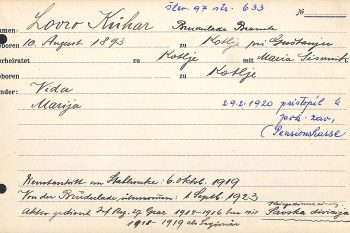 štev. 97 str. 633
amen: Lovro Kuhar Bruderlade Beamte №
eboren 10. August 1893 zu Kotlje pri Guštanju
erheiratet zu Kotlje mit Maria Sisernik
eboren zu Kotlje
inder: Vida
Marija 29.2.1920 pristopil k
pok. zav.
(Pensionskasse
Diensteintritt am Stahlwerke: 6. Oktob. 1919
Von der Bruderlade übernommen: 1. Sept. 1923
Aktiv gedient Inf. Reg. 27 Graz 1914-1916
Savska divizija
1918-1919 als